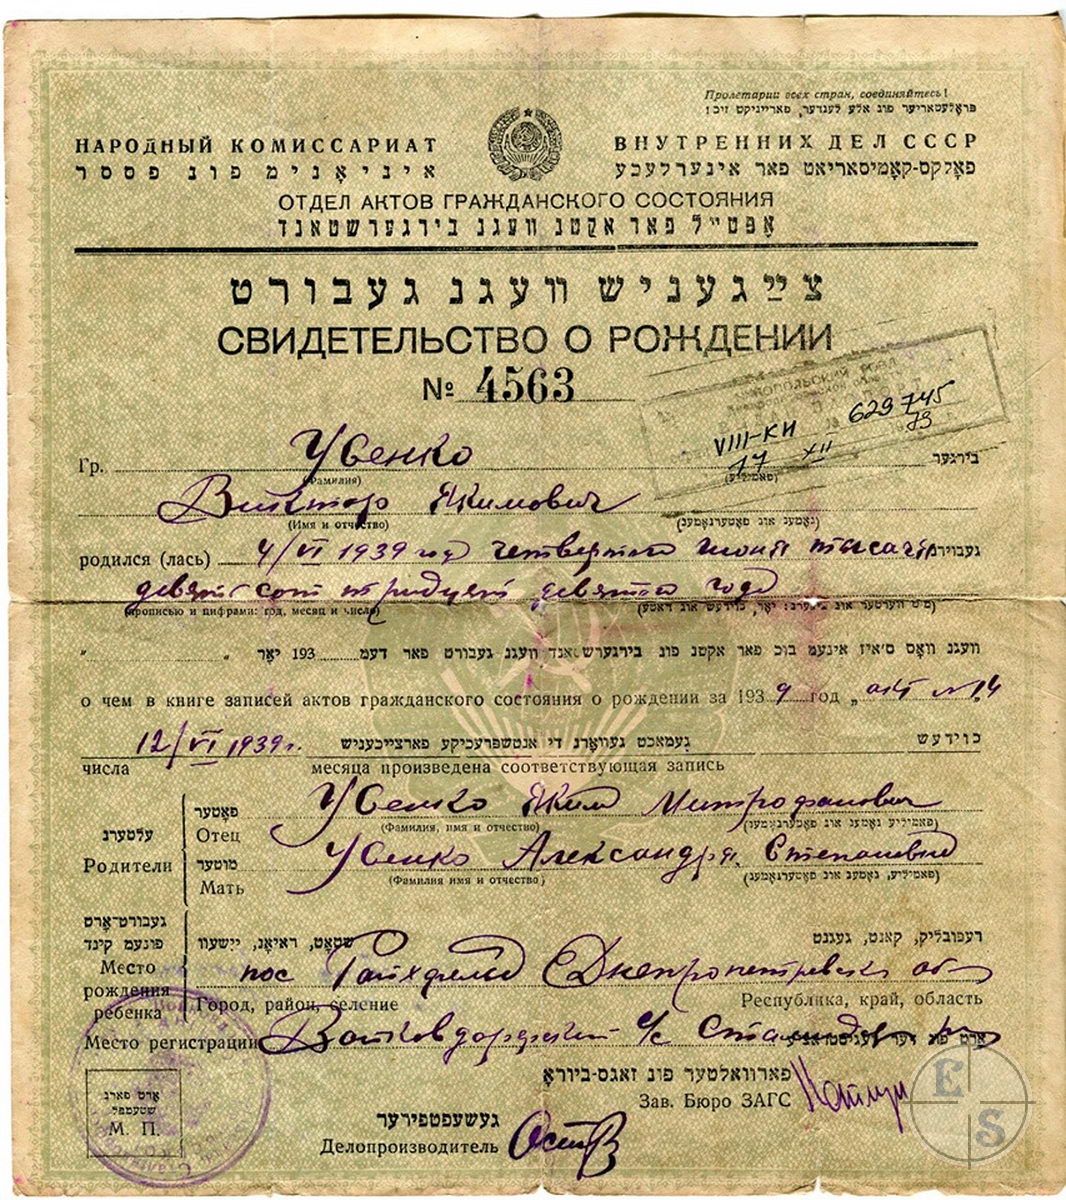 Пролетарии всех стран, соединяйтесь!
פּראָלעטאריער פון אלע לענדער, פאראייניקט זיך!
НАРОДНЫЙ КОМИССАРИАТ ВНУТРЕННИХ ДЕЛ СССР
פאָלקס-קאָמיסאריאט פאר אינערלעכע איניאָנים פונ פססר
ОТДЕЛ АКТОВ ГРАЖДАНСКОГО СОСТОЯНИЯ
אָפּטייל פאר אקטנ וועגנ בירגערשטאנד
צײַגעניש וועגנ געבורט
СВИДЕТЕЛЬСТВО О РОЖДЕНИИ
№ 4563
VIII-КИ № 629745
17 XII 79
Гр. Увенко בירגער
(Фамилия) (פאמיליע)
Виктор Якимович
(Имя и отчество) (נאָמענ אונ פאָטערנאָמענ)
родился (лась) 4/VI 1939 год четвертого июня тысяча געבוירן
девятсот тридцат девятого года
(прописью и цифрами: год, месяц и число) (מיט ווערטער אונ ציפער: יאָר, כוידעש אונ דאטע)
" " 193 יאָר וועגנ וואָס ס'איז אינעם בוכ פאר אקטנ פונ בירגערשטאנד וועגנ געבורט פאר דעם
о чем в книге записей актов гражданского состояния о рождении за 1939 год „ акт № 14
12/VI 1939г. געמאכט געוואָרנ די אנטשפּרעכיקע פארצייכעניש כוידעש
числа месяца произведена соответствующая запись
פאָטער Увенко Яким Митрофанович
עלטערנ Отец (Фамилия, имя и отчество) (פאמיליע, נאָמענ אונ פאָטערנאָמענ)
Родители מוטער Увенко Александра Степановна
Мать (Фамилия имя и отчество) (פאמיליע, נאָמענ אונ פאָטערנאָמענ)
געבורט-אָרט
פונעם קינד שטאָט, ראיאָנ, יישעוו רעפּובליק, קאנט, געגנט
Место пос Райхфельд Днепропетровск обл
рождения Город, район, селение Республика, край, область
ребенка
Место регистрации с/с
אָרט פונ דער רעגיסטראציע
אָרט פארנ
שטעמפּל
М. П.
פארוואלטער פונ זאגס-ביוראָ
Зав. Бюро ЗАГС
געשעפטפירער
Делопроизводитель
E S